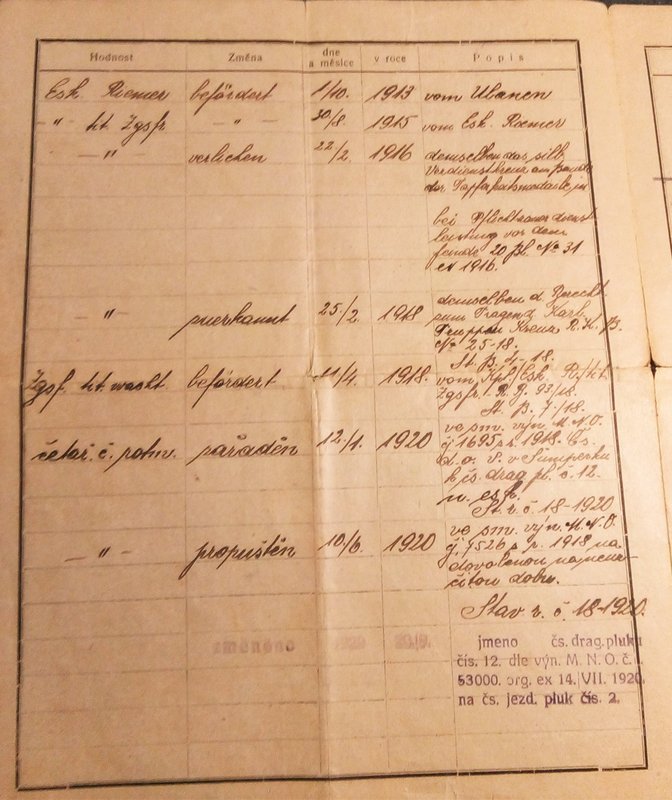 Hodnost Změna dne a měsíce v roce Popis
Esk. Riemer befördert 1/10. 1913 vom Ulanen
" tit. Zgsfr " 30/8. 1915 vom Esk. Riemer
" verliehen 22/2. 1916 demselben das silb.
Verdienstkreuz am Bande
der Tapferkeitsmedaille in
bei Pflichttreuer dienst
leistung vor dem
feinde 20 Bl. No 31
ex 1916.
" zuerkannt 25/2. 1918 demselben d. Berecht
zum Tragen d. Karl
Truppen Kreuz R. K. B.
No 25-18.
St. B. 4-18.
Zgsf. tit. wacht befördert 11/4. 1918. vom Kpl/Esk. Ri/tit.
Zgsfr. R. J. 93/18.
St. B. 7/18.
četař. č. rotm. zařaděn 12./1. 1920 ve sm. výn. M.N.O.
čj 1695 z r. 1918.
d. o. v. v Šumperku
k čs. drag. pl. č. 12.
n. esk.
St. r. č. 18-1920
" propuštěn 10/6. 1920 ve sm. výn. M.N.O.
čj. 7526 z r. 1918 na
dovolenou na neur-
čitou dobu.
Stav. r. č. 18-1920.
změněno 1920 jmeno čs. drag. pluku
čís. 12. dle výn. M. N. O. č. j.
53000. org. ex 14./VII. 1920.
na čs. jezd. pluk čís. 2.